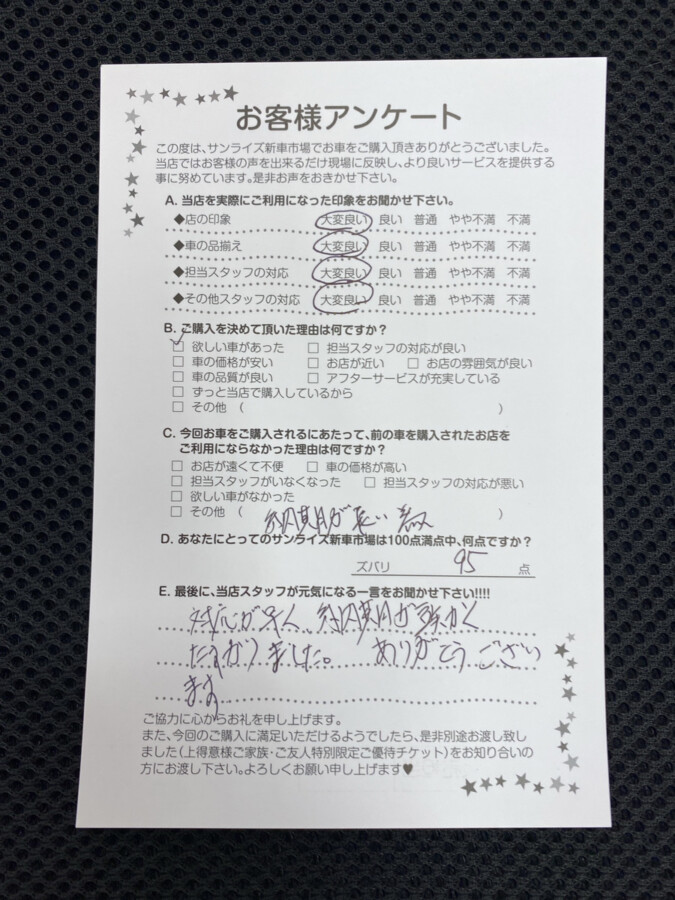 お客様アンケート
この度は、サンライズ新車市場でお車をご購入頂きありがとうございました。
当店ではお客様の声を出来るだけ現場に反映し、より良いサービスを提供する
事に努めています。是非お声をおきかせ下さい。
A. 当店を実際にご利用になった印象をお聞かせ下さい。
◆店の印象 大変良い 良い 普通 やや不満 不満
◆車の品揃え 大変良い 良い 普通 やや不満 不満
◆担当スタッフの対応 大変良い 良い 普通 やや不満 不満
◆その他スタッフの対応 大変良い 良い 普通 やや不満 不満
B. ご購入を決めて頂いた理由は何ですか?
☑ 欲しい車があった □ 担当スタッフの対応が良い
□ 車の価格が安い □ お店が近い □ お店の雰囲気が良い
□ 車の品質が良い □ アフターサービスが充実している
□ ずっと当店で購入しているから
□ その他 ( )
C. 今回お車をご購入されるにあたって、前の車を購入されたお店を
ご利用にならなかった理由は何ですか?
□ お店が遠くて不便 □ 車の価格が高い
□ 担当スタッフがいなくなった □ 担当スタッフの対応が悪い
□ 欲しい車がなかった
□ その他 ( 納期が長い為 )
D. あなたにとってのサンライズ新車市場は100点満点中、何点ですか?
ズバリ 95 点
E. 最後に、当店スタッフが元気になる一言をお聞かせ下さい!!!!
対応が早く、納期が短かく
たすかりました。 ありがとうござい
ます
ご協力に心からお礼を申し上げます。
また、今回のご購入に満足いただけるようでしたら、是非別途お渡し致し
ました(上得意様ご家族・ご友人特別限定ご優待チケット)をお知り合いの
方にお渡し下さい。よろしくお願い申し上げます♥